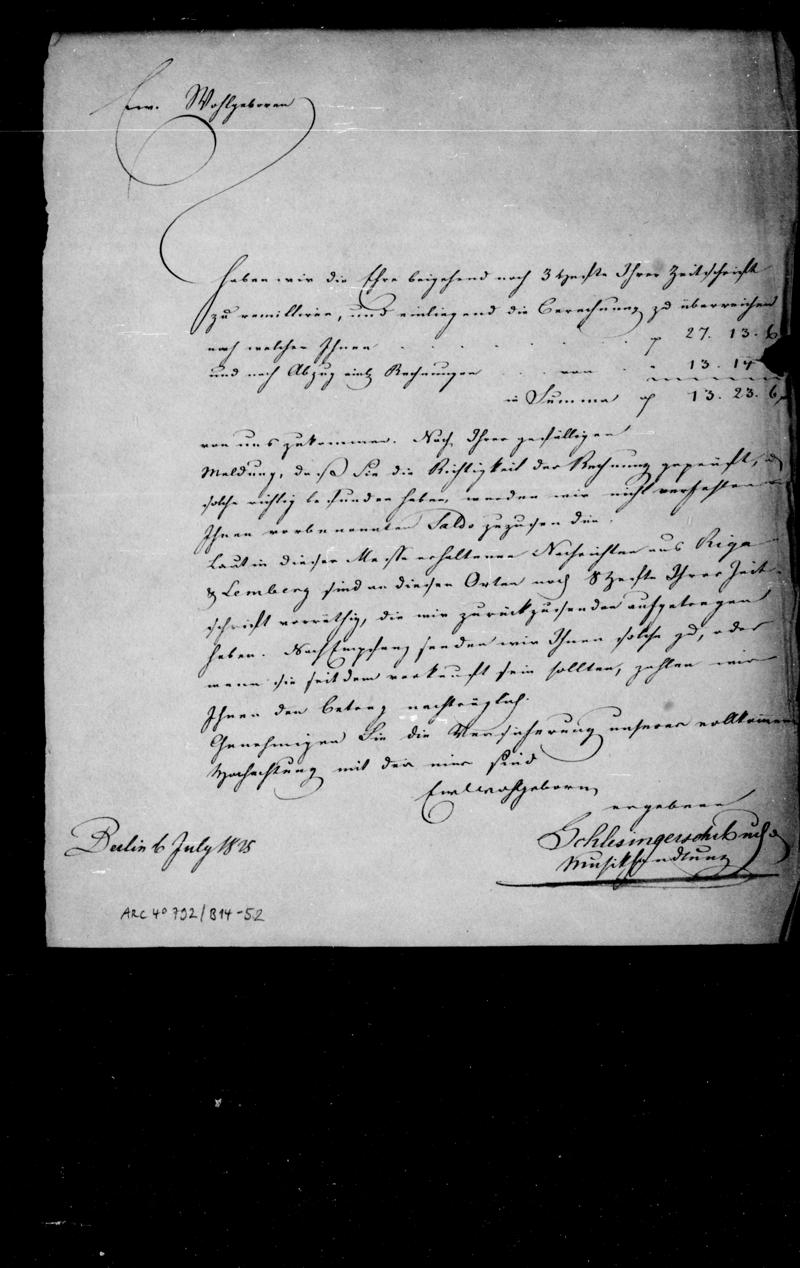 Ew. Wohlgeboren
haben wir die Ehre beigehend noch 3 Hefte Ihrer Zeitschrift
zu remittiren, und einliegend die Berechnung zu überreichen
nach welcher Ihnen . . . . . . 27. 13. 6
und nach Abzug Rechnungen . . von . 13. 14
in Summa 13. 23. 6
von uns zukommen. Nach Ihrer gefälligen
Meldung, daß Sie die Richtigkeit der Rechnung geprüft,
solche richtig befunden haben, werden wir nicht verfehlen
Ihnen vorbenannten Saldo zuzusenden.
Laut in dieser Messe erhaltenen Nachrichten aus Riga
& Lemberg sind an diesen Orten noch 8 Hefte Ihrer Zeit-
schrift vorräthig, die wir zurückzusenden aufgetragen
haben. Nach Empfang senden wir Ihnen solche zu, oder
wenn sie seitdem verkauft sein sollten, zahlen wir
Ihnen den Betrag nachträglich.
Genehmigen Sie die Versicherung unserer vollkommenen
Hochachtung mit der wir sind
Ew. Wohlgeboren
ergebene
Schlesingersche Buch &
Musikhandlung
Berlin 6 July 1825
ARC 4° 792/B14-52